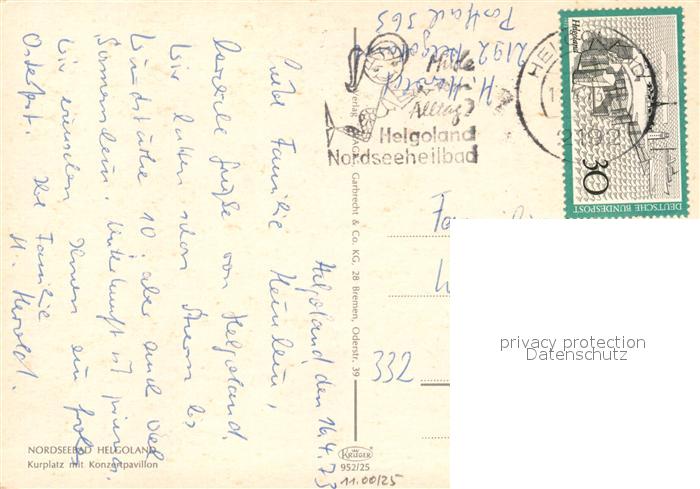 Helgoland, den 16.4.73
Liebe Familie Heinlein,
herzliche Grüße von Helgoland.
Wir hatten schon Sturm bis
Windstärke 10, aber auch viel
Sonnenschein. Unterkunft ist prima.
Wir wünschen Ihnen ein frohes
Osterfest. Ihre Familie
H. Herold.
H. Herold
2192 Helgoland
Postfach 365
Müde
vom
Alltag?
Helgoland
Nordseeheilbad
HELGOLAND
2192
Helgoland
30
DEUTSCHE BUNDESPOST
Verlag Garbrecht & Co. KG, 28 Bremen, Oderstr. 39
332
privacy protection
Datenschutz
NORDSEEBAD HELGOLAND
Kurplatz mit Konzertpavillon
KRÜGER
952/25
11.00/25